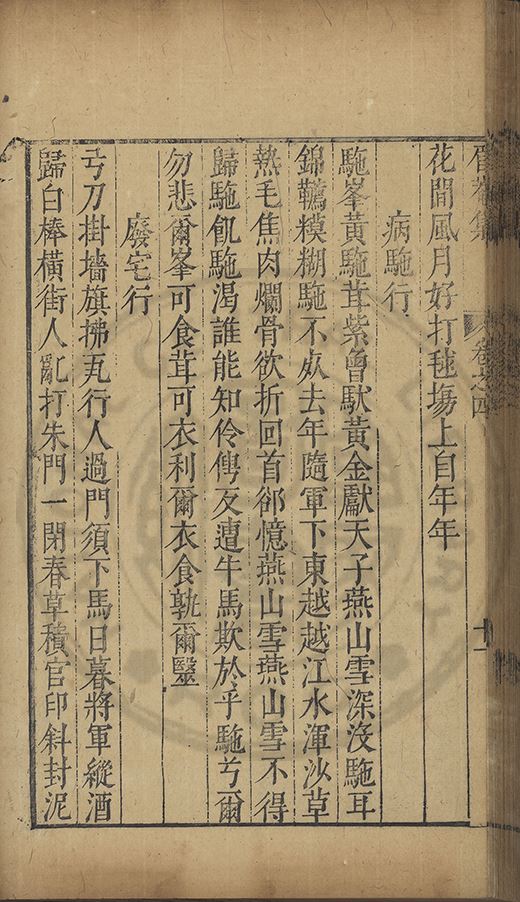 集 卷之四 十一
花間風月好打毬塲上自年年
病駞行
駞峯黃駞茸紫曾馱黃金獻天子燕山雪深沒駞耳
錦韉糢糊駞不去年隨軍下東越越江水渾沙草
熱毛焦肉爛骨欲折回首郤憶燕山雪燕山雪不得
歸駞飢駞渴誰能知伶俜反遭牛馬欺於乎駞兮爾
勿悲爾峯可食茸可衣利爾衣食孰爾毉
廢宅行
弓刀掛墻旗拂瓦行人過門須下馬日暮將軍縱酒
歸白棒橫街人亂打朱門一閉春草積官印斜封泥